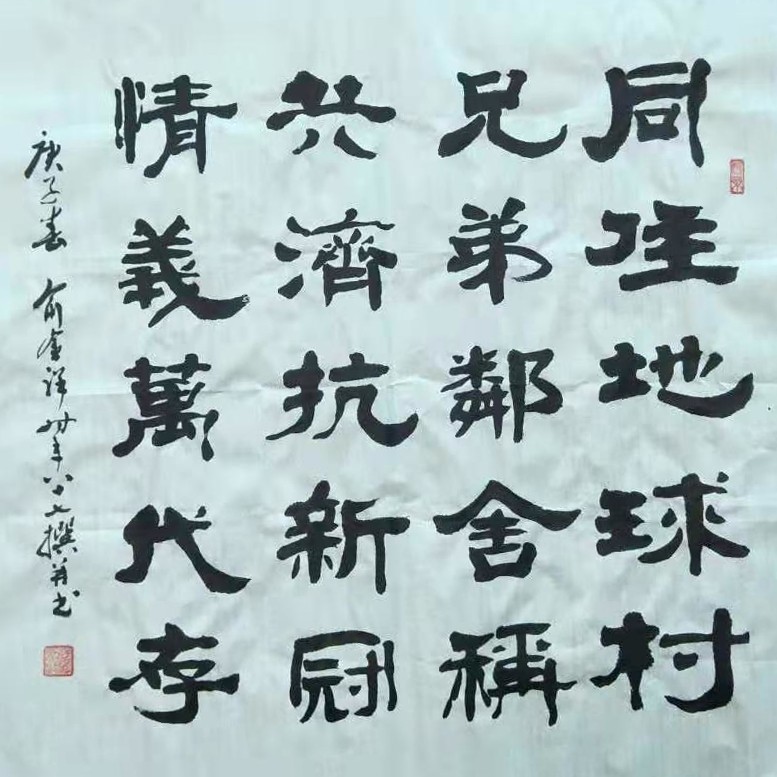 同住地球村
兄弟鄰舍稱
共濟抗新冠
情義萬代存
庚子春 俞金祥 卅年八十七撰并书